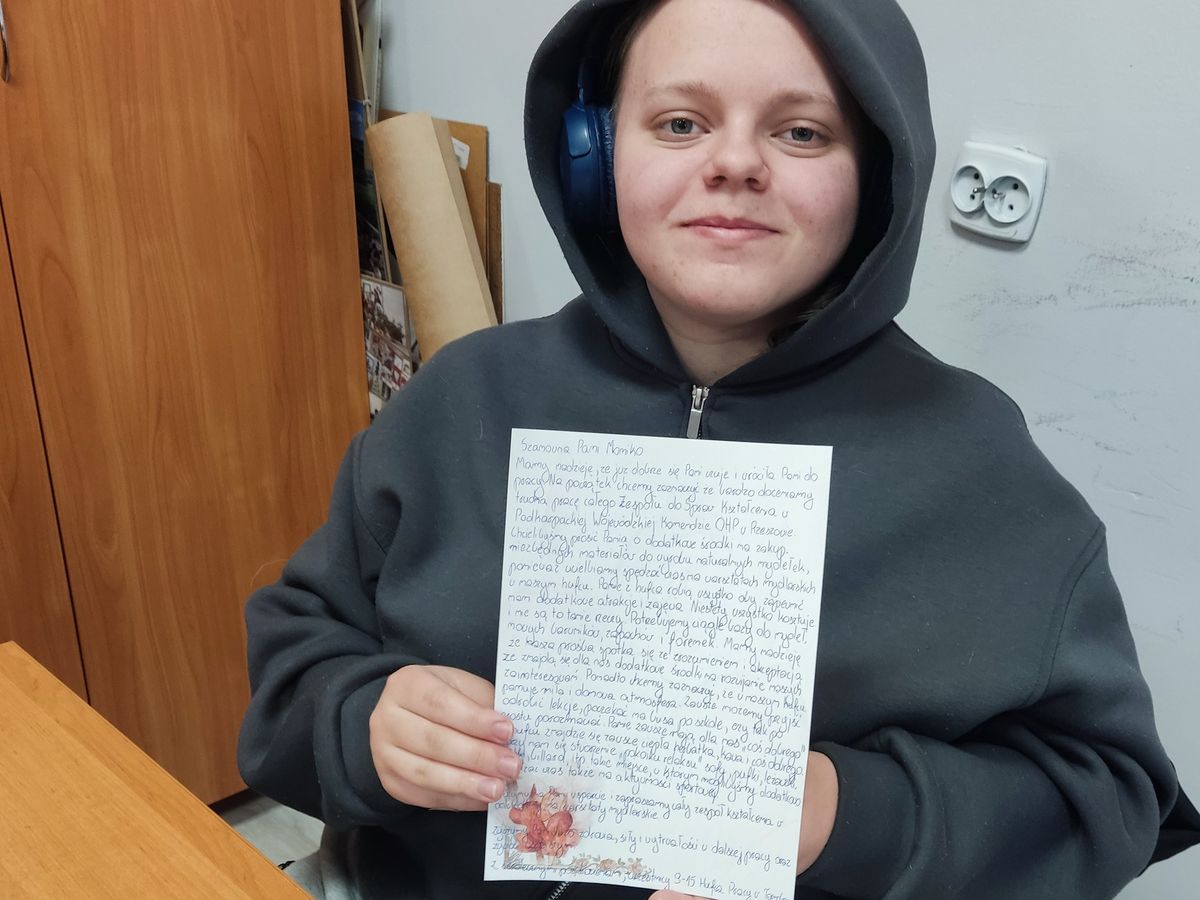 Szanowna Pani Moniko
Mamy nadzieję, że już dobrze się Pani czuje i wróciła Pani do
pracy. Na początek chcemy zaznaczyć że bardzo doceniamy
trudną pracę całego Zespołu do Spraw Kształcenia w
Podkarpackiej Wojewódzkiej Komendzie OHP w Rzeszowie.
Chcielibyśmy prosić Panią o dodatkowe środki na zakup
niezbędnych materiałów do wyrobu naturalnych mydełek,
ponieważ uwielbiamy spędzać czas na warsztatach mydlarskich
w naszym hufcu. Panie z hufca robią wszystko aby zapewnić
nam dodatkowe atrakcje i zajęcia. Niestety wszystko kosztuje
i nie są to tanie rzeczy. Potrzebujemy ciągle bazy do mydeł,
nowych barwników, zapachów i foremek. Mamy nadzieję
że nasza prośba spotka się ze zrozumieniem i akceptacją
że znajdą się dla nas dodatkowe środki na rozwijanie naszych
zainteresowań. Ponadto chcemy zaznaczyć, że w naszym hufcu
panuje miła i domowa atmosfera. Zawsze możemy przyjść
odrobić lekcje, poczekać na busa po szkole, czy tak po
prostu porozmawiać. Panie zawsze mają dla nas "coś dobrego"
hufcu znajdzie się zawsze ciepła herbatka, kawa i coś dobrego.
nam się stworzenie pokoiku relaksu: sofy, pufki, leżaczki,
billard, itp. takie miejsce, w którym moglibyśmy dodatkowo
czas także na aktywności sportowej.
na Pani wsparcie i zapraszamy cały zespół kształcenia w
na warsztaty mydlarskie
zdrowia, siły i wytrwałości w dalszej pracy oraz
z uczestnicy 9-15 Hufca Pracy w